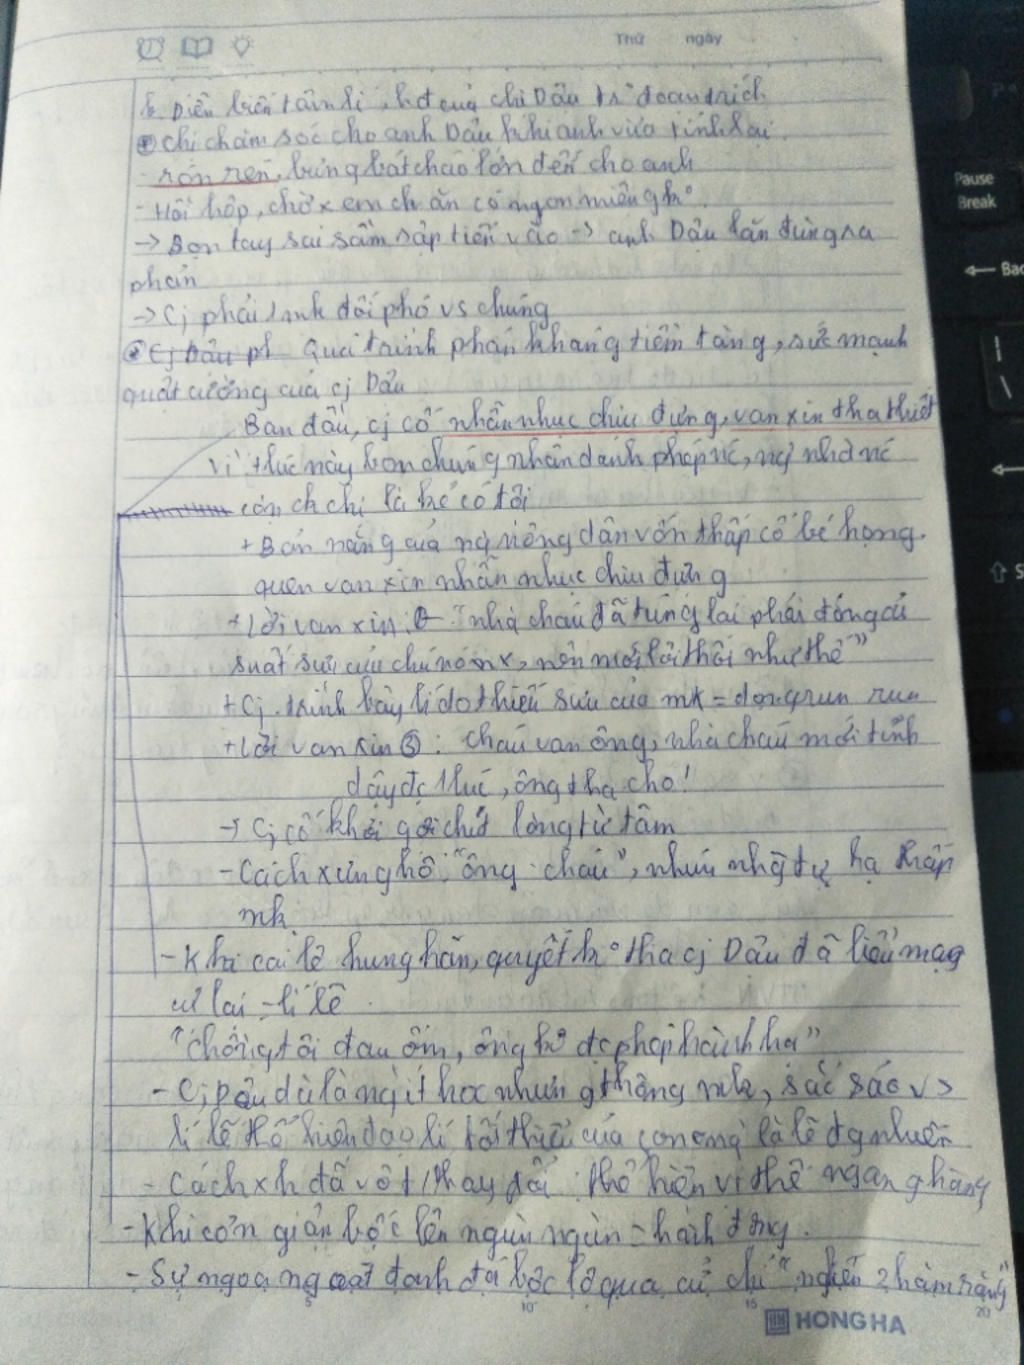 Thứ ngày
b. Diễn biến tâm lí, hđ của chị Dậu tr° đoạn trích
Chị chăm sóc cho anh Dậu khi anh vừa tỉnh lại.
- rón rén, bưng bát cháo lớn đến cho anh
- Hồi hộp, chờ xem ck ăn có ngon miệng k°.
-> Bọn tay sai sầm sập tiến vào -> anh Dậu lăn đùng ra
phản
-> Cj phải 1 mk đối phó vs chúng
Cj Dậu ph Quá trình phản kháng tiềm tàng, sức mạnh
quật cường của cj Dậu
Ban đầu, cj cố nhẫn nhục chịu đựng, van xin tha thiết
vì lúc này bọn chúng nhân danh phép nc, ng nhà nc
còn ck chị là kẻ có tội
+ Bản năng của ng nông dân vốn thấp cổ bé họng.
quen van xin nhẫn nhục chịu đựng
+ Lời van xin: "nhà cháu đã túng lại phải đóng cả
suất sưu của chú nó nx, nên mới lôi thôi như thế"
+ Cj trình bày lí do thiếu sưu của mk = run run
+ Lời van xin : cháu van ông, nhà cháu mới tỉnh
dậy đc 1 lúc, ông tha cho!
-> Cj cố khơi gợi chút lòng từ tâm
- Cách xưng hô "ông - cháu", nhún nhường tự hạ thấp
mk
- Khi cai lệ hung hãn, quyết k° tha cj Dậu đã liều mạng
cự lại = lí lẽ.
"Chồng tôi đau ốm, ông k° đc phép hành hạ"
- Cj Dậu dù là ng ít học nhưng thông mk, sắc sảo vs
lí lẽ thể hiện đạo lí tối thiểu của con ng là lẽ đg nhiên
- Cách xh đã thay đổi: thể hiện vị thế ngang hàng
- Khi cơn giận bốc lên ngùn ngùn = hành động.
- Sự ngoa ngoắt đanh đá bộc lộ qua cử chỉ "nghiến 2 hàm răng"
5 10 15 20
HONG HA
Pause
Break